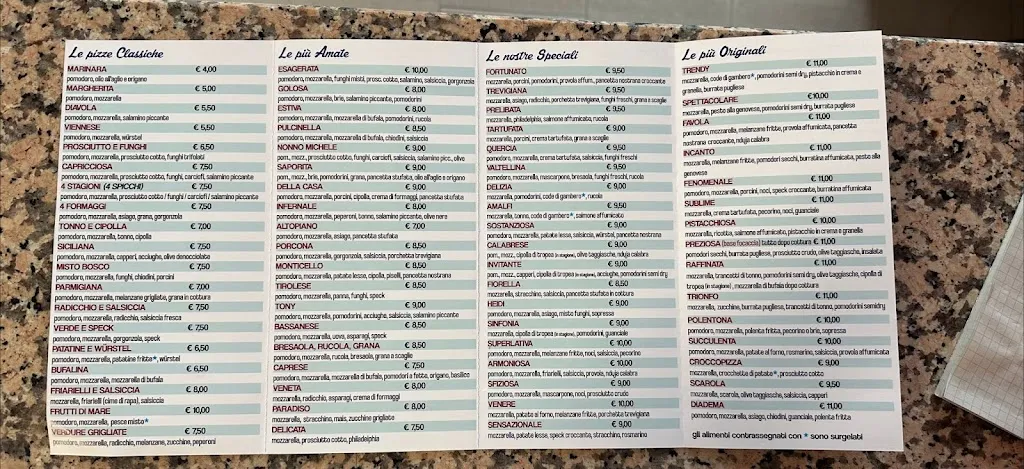 Le pizze Classiche
MARINARA € 4,00
pomodoro, olio all'aglio e origano
MARGHERITA € 5,00
pomodoro, mozzarella
DIAVOLA € 5,50
pomodoro, mozzarella, salamino piccante
VIENNESE € 5,50
pomodoro, mozzarella, würstel
PROSCIUTTO E FUNGHI € 6,50
pomodoro, mozzarella, prosciutto cotto, funghi trifolati
CAPRICCIOSA € 7,50
pomodoro, mozzarella, prosciutto cotto, funghi, carciofi, salamino piccante
4 STAGIONI (4 SPICCHI) € 7,50
pomodoro, mozzarella, prosciutto cotto / funghi / carciofi / salamino piccante
4 FORMAGGI € 7,50
pomodoro, mozzarella, asiago, grana, gorgonzola
TONNO E CIPOLLA € 7,00
pomodoro, mozzarella, tonno, cipolla
SICILIANA € 7,50
pomodoro, mozzarella, capperi, acciughe, olive denocciolate
MISTO BOSCO € 7,50
pomodoro, mozzarella, funghi, chiodini, porcini
PARMIGIANA € 7,00
pomodoro, mozzarella, melanzane grigliate, grana in cottura
RADICCHIO E SALSICCIA € 7,50
pomodoro, mozzarella, radicchio, salsiccia fresca
VERDE E SPECK € 7,50
pomodoro, mozzarella, gorgonzola, speck
PATATINE E WÜRSTEL € 6,50
pomodoro, mozzarella, patatine fritte*, würstel
BUFALINA € 6,50
pomodoro, mozzarella, mozzarella di bufala
FRIARIELLI E SALSICCIA € 8,00
mozzarella, friarielli (cime di rapa), salsiccia
FRUTTI DI MARE € 10,00
pomodoro, mozzarella, pesce misto*
VERDURE GRIGLIATE € 7,50
pomodoro, mozzarella, radicchio, melanzane, zucchine, peperoni
Le più Amate
ESAGERATA € 10,00
pomodoro, mozzarella, funghi misti, prosc. cotto, salamino, salsiccia, gorgonzola
GOLOSA € 8,00
pomodoro, mozzarella, brie, salamino piccante, pomodorini
ESTIVA € 8,00
pomodoro, mozzarella, mozzarella di bufala, pomodorini, rucola
PULCINELLA € 8,50
pomodoro, mozzarella, mozzarella di bufala, chiodini, salsiccia
NONNO MICHELE € 9,00
pom., mozz., prosciutto cotto, funghi, carciofi, salsiccia, salamino picc., olive
SAPORITA € 9,00
pom., mozz., brie, pomodorini, grana, pancetta stufata, olio all'aglio e origano
DELLA CASA € 9,00
pomodoro, mozzarella, porcini, cipolla, crema di formaggi, pancetta stufata
INFERNALE € 8,00
pomodoro, mozzarella, peperoni, tonno, salamino piccante, olive nere
ALTOPIANO € 7,00
pomodoro, mozzarella, asiago, pancetta stufata
PORCONA € 8,50
pomodoro, mozzarella, gorgonzola, salsiccia, porchetta trevigiana
MONTICELLO € 8,50
pomodoro, mozzarella, patate lesse, cipolla, piselli, pancetta nostrana
TIROLESE € 8,50
pomodoro, mozzarella, panna, funghi, speck
TONY € 9,00
pomodoro, mozzarella, pomodorini, acciughe, salsiccia, salamino piccante
BASSANESE € 8,50
pomodoro, mozzarella, uova, asparagi, speck
BRESAOLA, RUCOLA, GRANA € 8,50
pomodoro, mozzarella, rucola, bresaola, grana a scaglie
CAPRESE € 7,50
pomodoro, mozzarella, mozzarella di bufala, pomodori a fette, origano, basilico
VENETA € 8,00
mozzarella, radicchio, asparagi, crema di formaggi
PARADISO € 8,00
mozzarella, stracchino, mais, zucchine grigliate
DELICATA € 7,50
mozzarella, prosciutto cotto, philadelphia
Le nostre Speciali
FORTUNATO € 9,50
mozzarella, porcini, pomodorini, provola affum., pancetta nostrana croccante
TREVIGIANA € 9,50
mozzarella, asiago, radicchio, porchetta trevigiana, funghi freschi, grana a scaglie
PRELIBATA € 9,50
mozzarella, philadelphia, salmone affumicato, rucola
TARTUFATA € 9,00
mozzarella, porcini, crema tartufata, grana a scaglie
QUERCIA € 9,50
pomodoro, mozzarella, crema tartufata, salsiccia, funghi freschi
VALTELLINA € 9,50
pomodoro, mozzarella, mascarpone, bresaola, funghi freschi, rucola
DELIZIA € 9,00
mozzarella, pomodorini, code di gambero*, rucola
AMALFI € 9,50
mozzarella, tonno, code di gambero*, salmone affumicato
SOSTANZIOSA € 9,00
pomodoro, mozzarella, patate lesse, salsiccia, würstel, pancetta nostrana
CALABRESE € 9,00
pom., mozz., cipolla di tropea (in stagione), olive taggiasche, nduja calabra
INVITANTE € 9,00
pom., mozz., capperi, cipolla di tropea (in stagione), acciughe, pomodorini semi dry
FIORELLA € 8,50
mozzarella, stracchino, salsiccia, pancetta stufata in cottura
HEIDI € 9,00
pomodoro, mozzarella, asiago, misto funghi, sopressa
SINFONIA € 9,00
mozzarella, cipolla di tropea (in stagione), pomodorini, guanciale
SUPERLATIVA € 10,00
pomodoro, mozzarella, melanzane fritte, noci, salsiccia, pecorino
ARMONIOSA € 10,00
pomodoro, mozzarella, friarielli, salsiccia, provola, nduja calabra
SFIZIOSA € 9,00
pomodoro, mozzarella, mascarpone, noci, prosciutto crudo
VENERE € 10,00
mozzarella, patate al forno, melanzane fritte, porchetta trevigiana
SENSAZIONALE € 9,00
mozzarella, patate lesse, speck croccante, stracchino, rosmarino
Le più Originali
TRENDY € 11,00
mozzarella, code di gambero*, pomodorini semi dry, pistacchio in crema e
granella, burrata pugliese
SPETTACOLARE € 10,00
mozzarella, pesto alla genovese, pomodorini semi dry, burrata pugliese
FAVOLA € 11,00
pomodoro, mozzarella, melanzane fritte, provola affumicata, pancetta
nostrana croccante, nduja calabra
INCANTO € 11,00
mozzarella, melanzane fritte, pomodori secchi, burratina affumicata, pesto alla
genovese
FENOMENALE € 11,00
pomodoro, mozzarella, porcini, noci, speck croccante, burratina affumicata
SUBLIME € 11,00
mozzarella, crema tartufata, pecorino, noci, guanciale
PISTACCHIOSA € 10,00
mozzarella, ricotta, salmone affumicato, pistacchio in crema e granella
PREZIOSA (base focaccia) tutto dopo cottura € 11,00
pomodori secchi, burrata pugliese, prosciutto crudo, olive taggiasche, insalata
RAFFINATA € 11,00
mozzarella, trancetti di tonno, pomodorini semi dry, olive taggiasche, cipolla di
tropea (in stagione), mozzarella di bufala dopo cottura
TRIONFO € 11,00
mozzarella, zucchine, burrata pugliese, trancetti di tonno, pomodorini semidry
POLENTONA € 10,00
pomodoro, mozzarella, polenta fritta, pecorino o brie, sopressa
SUCCULENTA € 10,00
pomodoro, mozzarella, patate al forno, rosmarino, salsiccia, provola affumicata
CROCCOPIZZA € 9,00
mozzarella, crocchette di patate*, prosciutto cotto
SCAROLA € 9,50
mozzarella, scarola, olive taggiasche, salsiccia, capperi
DIADEMA € 11,00
pomodoro, mozzarella, asiago, chiodini, guanciale, polenta fritta
gli alimenti contrassegnati con * sono surgelati